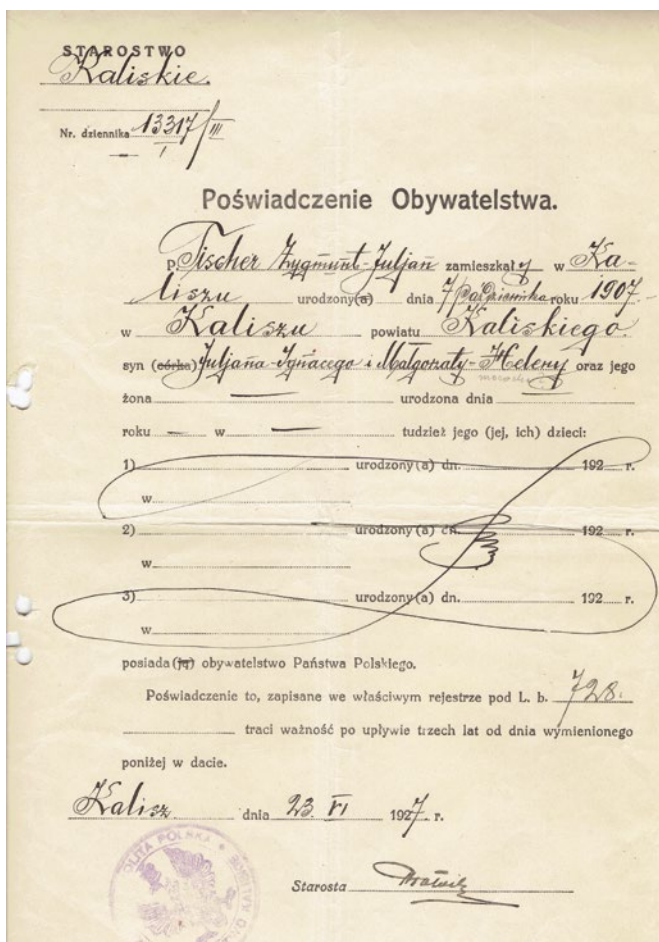 STAROSTWO
Kaliskie.
Nr. dziennika 13317/III
I
Poświadczenie Obywatelstwa.
P. Fischer Zygmunt-Juljan zamieszkały w Ka-
liszu urodzony(a) dnia 7 Października roku 1907.
w Kaliszu powiatu Kaliskiego.
syn (córka) Juljana-Ignacego i Małgorzaty-Heleny oraz jego
żona — urodzona dnia —
roku — w — tudzież jego (jej, ich) dzieci:
1) urodzony(a) dn. 192 r.
w
2) urodzony(a) dn. 192 r.
w
3) urodzony(a) dn. 192 r.
w
posiada (ją) obywatelstwo Państwa Polskiego.
Poświadczenie to, zapisane we właściwym rejestrze pod L. b. 728.
traci ważność po upływie trzech lat od dnia wymienionego
poniżej w dacie.
Kalisz dnia 23. VI 1927. r.
POLITA POLSKA
Starosta